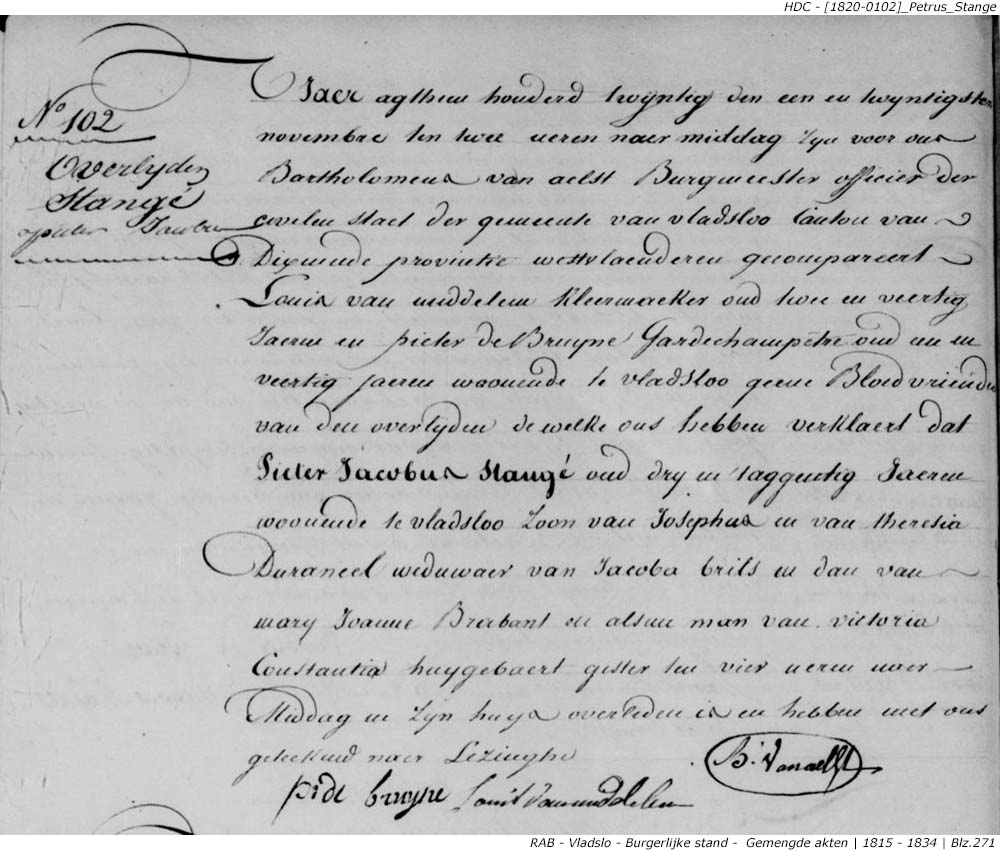 HDC - [1820-0102]_Petrus_Stange
N° 102
Overlyden
Stangé
pieter Jacobus
Jaer agthien honderd twyntig den een en twyntigsten
novembre ten twee ueren naer middag zyn voor ons
Bartholomeus van aelst Burgmeester officier der
civelen staet der gemeente van vladsloo Canton van
Dixmude provintie westvlaenderen gecompareert
Louis van middelem Kleermaeker oud twee en veertig
Jaeren en pieter de Bruyne Gardechampetre oud een en
veertig jaeren woonende te vladsloo geene Bloedvrienden
van den overlyden de welke ons hebben verklaert dat
Pieter Jacobus Stangé oud dry en taggentig Jaeren
woonende te vladsloo zoon van Josephus en van theresia
Duraneel weduwaer van Jacoba brils en dan van
mary Joanne Brabant en alsnu man van victoria
Constantia huygebaert gister ten vier ueren naer
Middag in zyn huys overleden is en hebben met ons
geteekend naer Lezinghe
B. Vanaelst
P: de bruyne Louis Vanmiddelem
RAB - Vladslo - Burgerlijke stand - Gemengde akten | 1815 - 1834 | Blz.271